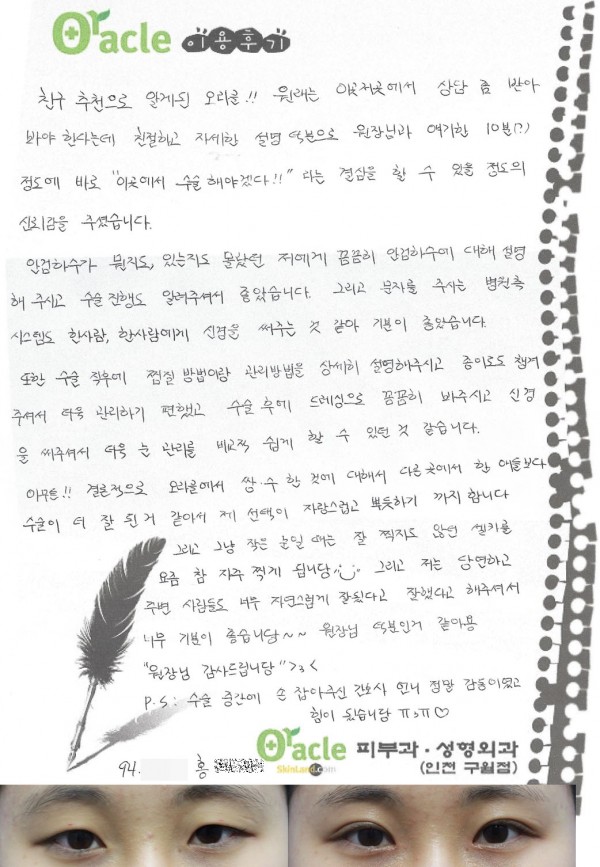 Oracle 이용후기
친구 추천으로 알게된 오라클!! 원래는 이곳저곳에서 상담 좀 받아
봐야 한다는데 친절하고 자세한 설명 덕분으로 원장님과 얘기한 10분(?)
정도에 바로 "이곳에서 수술 해야겠다!!" 라는 결심을 할 수 있을 정도의
신뢰감을 주셨습니다.
안검하수가 뭔지도, 있는지도 몰랐던 저에게 꼼꼼히 안검하수에 대해 설명
해 주시고 수술 진행도 알려주셔서 좋았습니다. 그리고 문자를 주시는 병원측
시스템도 한사람, 한사람에게 신경을 써주는 것 같아 기분이 좋았습니다.
또한 수술 직후에 찜질 방법이랑 관리방법을 상세히 설명해주시고 종이로도 챙겨
주셔서 더욱 관리하기 편했고 수술 후에 드레싱으로 꼼꼼히 봐주시고 신경
을 써주셔서 더욱 눈 관리를 비교적 쉽게 할 수 있던 것 같습니다.
아무튼!! 결론적으로 오라클에서 쌍·수 한 것에 대해서 다른 곳에서 한 애들보다
수술이 더 잘 된 거 같아서 제 선택이 자랑스럽고 뿌듯하기 까지 합니다
그리고 그냥 작은 눈일 때는 잘 찍지도 않던 셀카를
요즘 참 자주 찍게 됩니당 그리고 저는 당연하고
주변 사람들도 너무 자연스럽게 잘됐다고 잘했다고 해주셔서
너무 기분이 좋습니당~~ 원장님 덕분인거 같아용
"원장님 감사드립니당" >3<
P.S : 수술 중간에 손 잡아주신 간호사 언니 정말 감동이였고
힘이 됐습니당 ㅠ3ㅠ♡
94. 홍
Oracle 피부과·성형외과
SkinLand.com (인천 구월점)